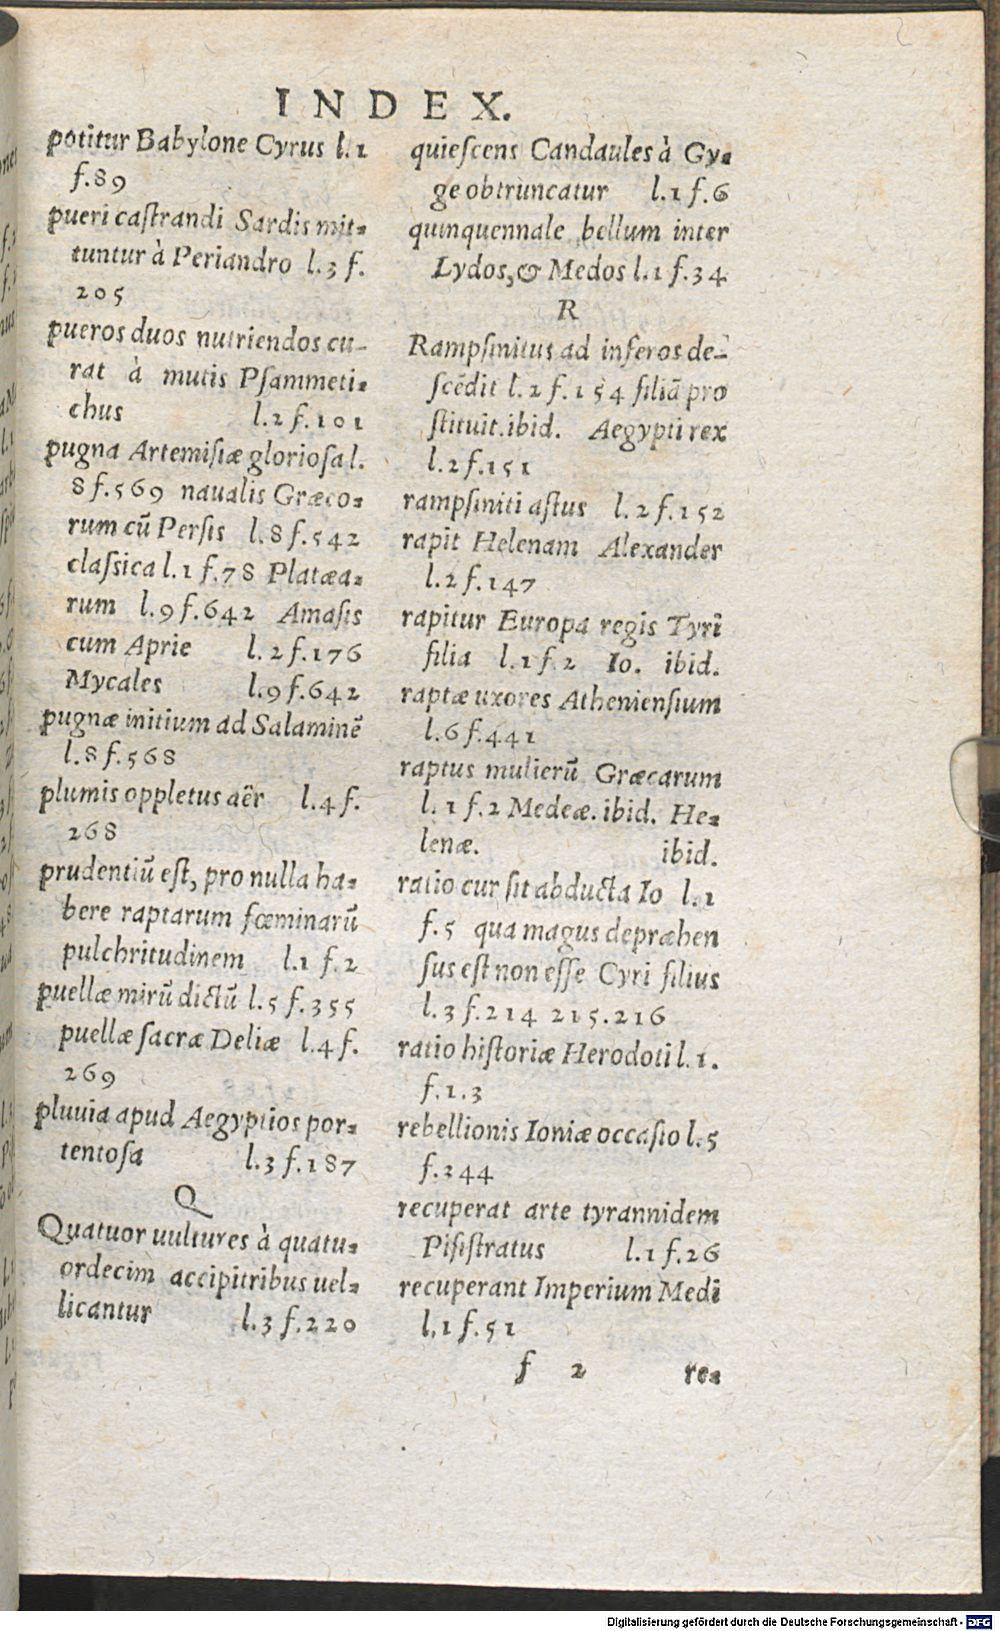 INDEX.
potitur Babylone Cyrus l.1
f.89
pueri caſtrandi Sardis mit-
tuntur à Periandro l.3 f.
205
pueros duos nutriendos cu-
rat à mutis Pſammeti-
chus l.2 f.101
pugna Artemiſiæ glorioſa l.
8 f.569 naualis Græco-
rum cū Perſis l.8 f.542
claſsica l.1 f.78 Platæa-
rum l.9 f.642 Amaſis
cum Aprie l.2 f.176
Mycales l.9 f.642
pugnæ initium ad Salaminē
l.8 f.568
plumis oppletus aër l.4 f.
268
prudentiū eſt, pro nulla ha-
bere raptarum fœminarū
pulchritudinem l.1 f.2
puellæ mirū dictū l.5 f.355
puellæ ſacræ Deliæ l.4 f.
269
pluuia apud Aegyptios por-
tentoſa l.3 f.187
Q
Quatuor uultures à quatu-
ordecim accipitribus uel-
licantur l.3 f.220
quieſcens Candaules à Gy-
ge obtruncatur l.1 f.6
quinquennale bellum inter
Lydos, & Medos l.1 f.34
R
Rampſinitus ad inferos de-
ſcēdit l.2 f.154 filiā pro
ſtituit.ibid. Aegypti rex
l.2 f.151
rampſiniti aſtus l.2 f.152
rapit Helenam Alexander
l.2 f.147
rapitur Europa regis Tyri
filia l.1 f.2 Io. ibid.
raptæ uxores Athenienſium
l.6 f.441
raptus mulierū Græcarum
l.1 f.2 Medeæ. ibid. He-
lenæ. ibid.
ratio cur ſit abducta Io l.1
f.5 qua magus depræhen
ſus eſt non eſſe Cyri filius
l.3 f.214 215.216
ratio hiſtoriæ Herodoti l.1.
f.1.3
rebellionis Ioniæ occaſio l.5
f.244
recuperat arte tyrannidem
Piſiſtratus l.1 f.26
recuperant Imperium Medi
l,1 f.51
f 2 re-
Digitalisierung gefördert durch die Deutsche Forschungsgemeinschaft - DFG